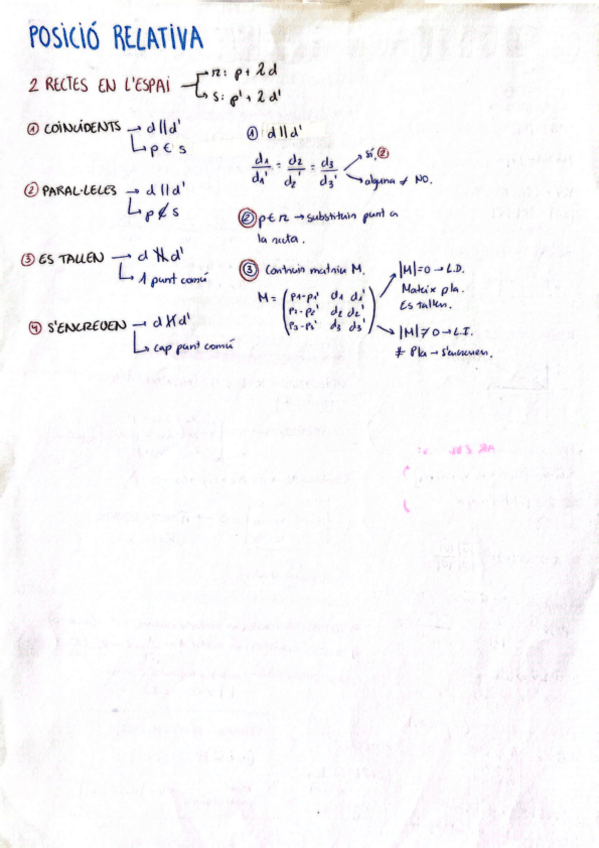 POSICIÓ RELATIVA
2 RECTES EN L'ESPAI
r: p + λd
s: p' + λd'
① COÏNCIDENTS → d || d'
p ∈ s
② PARAL·LELES → d || d'
p ∉ s
③ ES TALLEN → d ∦ d'
1 punt comú
④ S'ENCREUEN → d ∦ d'
cap punt comú
① d || d'
d1/d1' = d2/d2' = d3/d3'
sí, ②
alguna ≠ NO.
② p ∈ r → substituïm punt a
la recta.
③ Construïm matriu M.
M = (p1-p1' d1 d1'
p2-p2' d2 d2'
p3-p3' d3 d3')
|M|=0 → L.D.
Mateix pla.
Es tallen.
|M|≠0 → L.I.
≠ Pla → s'encreuen.